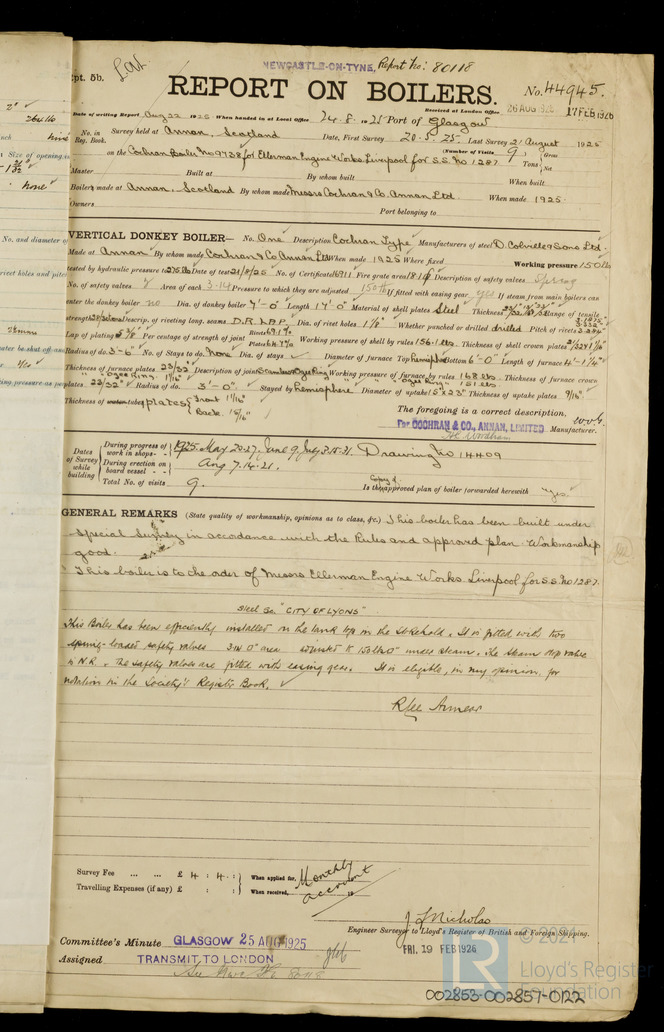 NEWCASTLE-ON-TYNE. Report No: 80118
Rpt. 5b.
REPORT ON BOILERS.
No. 44945.
Received at London Office 26 AUG 1925 17 FEB 1926
Date of writing Report Aug 22 1925 When handed in at Local Office 24.8.1925 Port of Glasgow
No. in Reg. Book. Survey held at Annan, Scotland Date, First Survey 20-5-25. Last Survey 21 August 1925
(Number of Visits 9)
on the Cochran Boiler No 9738 for Ellerman Engine Works Liverpool for S.S. No 1287 Tons Gross Net
Master Built at By whom built When built
Boilers made at Annan, Scotland By whom made Messrs Cochran & Co. Annan Ltd When made 1925.
Owners Port belonging to
VERTICAL DONKEY BOILER— No. One Description Cochran Type Manufacturers of steel D. Colville & Sons Ltd.
Made at Annan By whom made Cochran & Co Annan Ltd When made 1925 Where fixed Working pressure 150 lb
tested by hydraulic pressure to Date of test 21/8/25 No. of Certificate Fire grate area Description of safety valves Spring
No. of safety valves 2 Area of each 3.14 Pressure to which they are adjusted 150 lb If fitted with easing gear yes If steam from main boilers can
enter the donkey boiler no Dia. of donkey boiler 7'-0" Length 17'-0" Material of shell plates Steel Thickness Range of tensile
strength Descrip. of riveting long. seams D.R. LAP Dia. of rivet holes 1 1/8" Whether punched or drilled drilled Pitch of rivets
Lap of plating 5 3/8 Per centage of strength of joint Rivets Plates Working pressure of shell by rules 156.1 lbs. Thickness of shell crown plates
Radius of do. 3'-6" No. of Stays to do. None Dia. of stays Diameter of furnace Top hemisphere Bottom 6'-0" Length of furnace 4'-1 1/4"
Thickness of furnace plates 23/32 Description of joint Seamless Ogee Ring Working pressure of furnace by rules 168 lbs. Thickness of furnace crown
" Ogee Ring. 1 1/16" " " Ogee Ring 151 lbs.
plates 23/32" Radius of do. 3'-0" Stayed by hemisphere Diameter of uptake 15" x 23" Thickness of uptake plates 9/16"
Thickness of tube plates { Front 1 1/16" Back 15/16"
The foregoing is a correct description.
For COCHRAN & CO., ANNAN, LIMITED Manufacturer.
Dates of Survey while building
During progress of work in shops - - 1925. May 20.27. June 9. July 3.15.31. Drawing No 14409
During erection on board vessel - - Aug 7.14.21.
Total No. of visits 9.
Is the Copy of approved plan of boiler forwarded herewith "yes.
GENERAL REMARKS (State quality of workmanship, opinions as to class, &c.) This boiler has been built under
special survey in accordance with the Rules and approved plan. Workmanship
good.
This boiler is to the order of Messrs Ellerman Engine Works Liverpool for S.S. No 1287.
Steel Sc. "CITY OF LYONS"
This Boiler has been efficiently installed on the tank top in the Stokehold. It is fitted with two
spring-loaded safety valves 3.14 □" area adjusted to 150 lbs □" under steam. The steam stop valve
is N.R. The safety valves are fitted with easing gear. It is eligible, in my opinion, for
notation in the Society's Register Book.
R Lee Annear
Survey Fee ... ... £ 4 : 4 : When applied for, Monthly
Travelling Expenses (if any) £ : : When received, account
J Nicholas
Engineer Surveyor to Lloyd's Register of British and Foreign Shipping.
Committee's Minute GLASGOW 25 AUG 1925
FRI. 19 FEB 1926
Assigned TRANSMIT TO LONDON
© 2021
Lloyd's Register
Foundation
002853-002857-0122